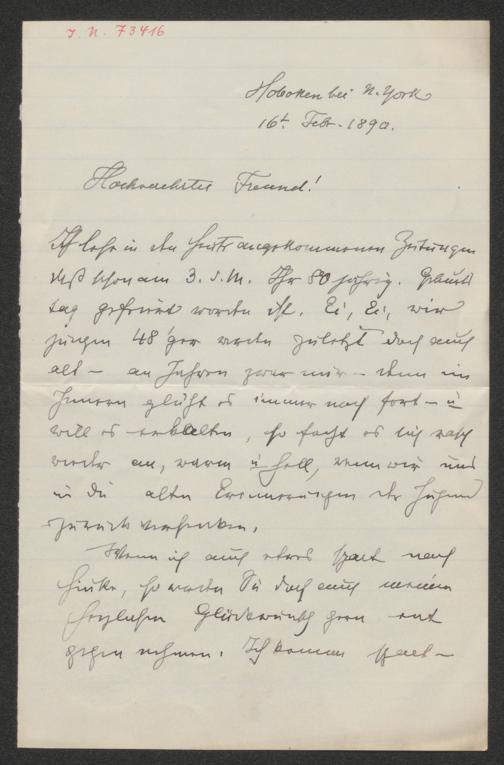 J. N. 73416
Hoboken bei N. York
16t Febr. 1890.
Hochverehrter Freund!
Ich lese in den heute angekommenen Zeitungen
daß schon am 3. d. M. Ihr 80 jährig. Geburts
tag gefeiert worden ist. Ei, Ei, wir
jungen 48ger werden zuletzt doch auch
alt – an Jahren zwar nur – denn im
Innern glüht es immer noch fort – u
will es erkalten, so facht es sich rasch
wieder an, warm u hell, wenn wir uns
in die alten Erinnerungen der Jugend
zurück versenken.
Wenn ich auch etwas spaet nach
hinke, so werden Sie doch auch meinen
herzlichen Glückwunsch gern ent
gegen nehmen. Ich komme spaet –